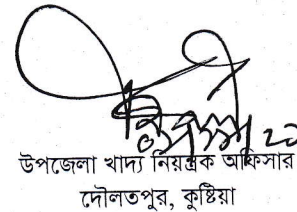 উপজেলা খাদ্য নিয়ন্ত্রক অফিসার
দৌলতপুর, কুষ্টিয়া